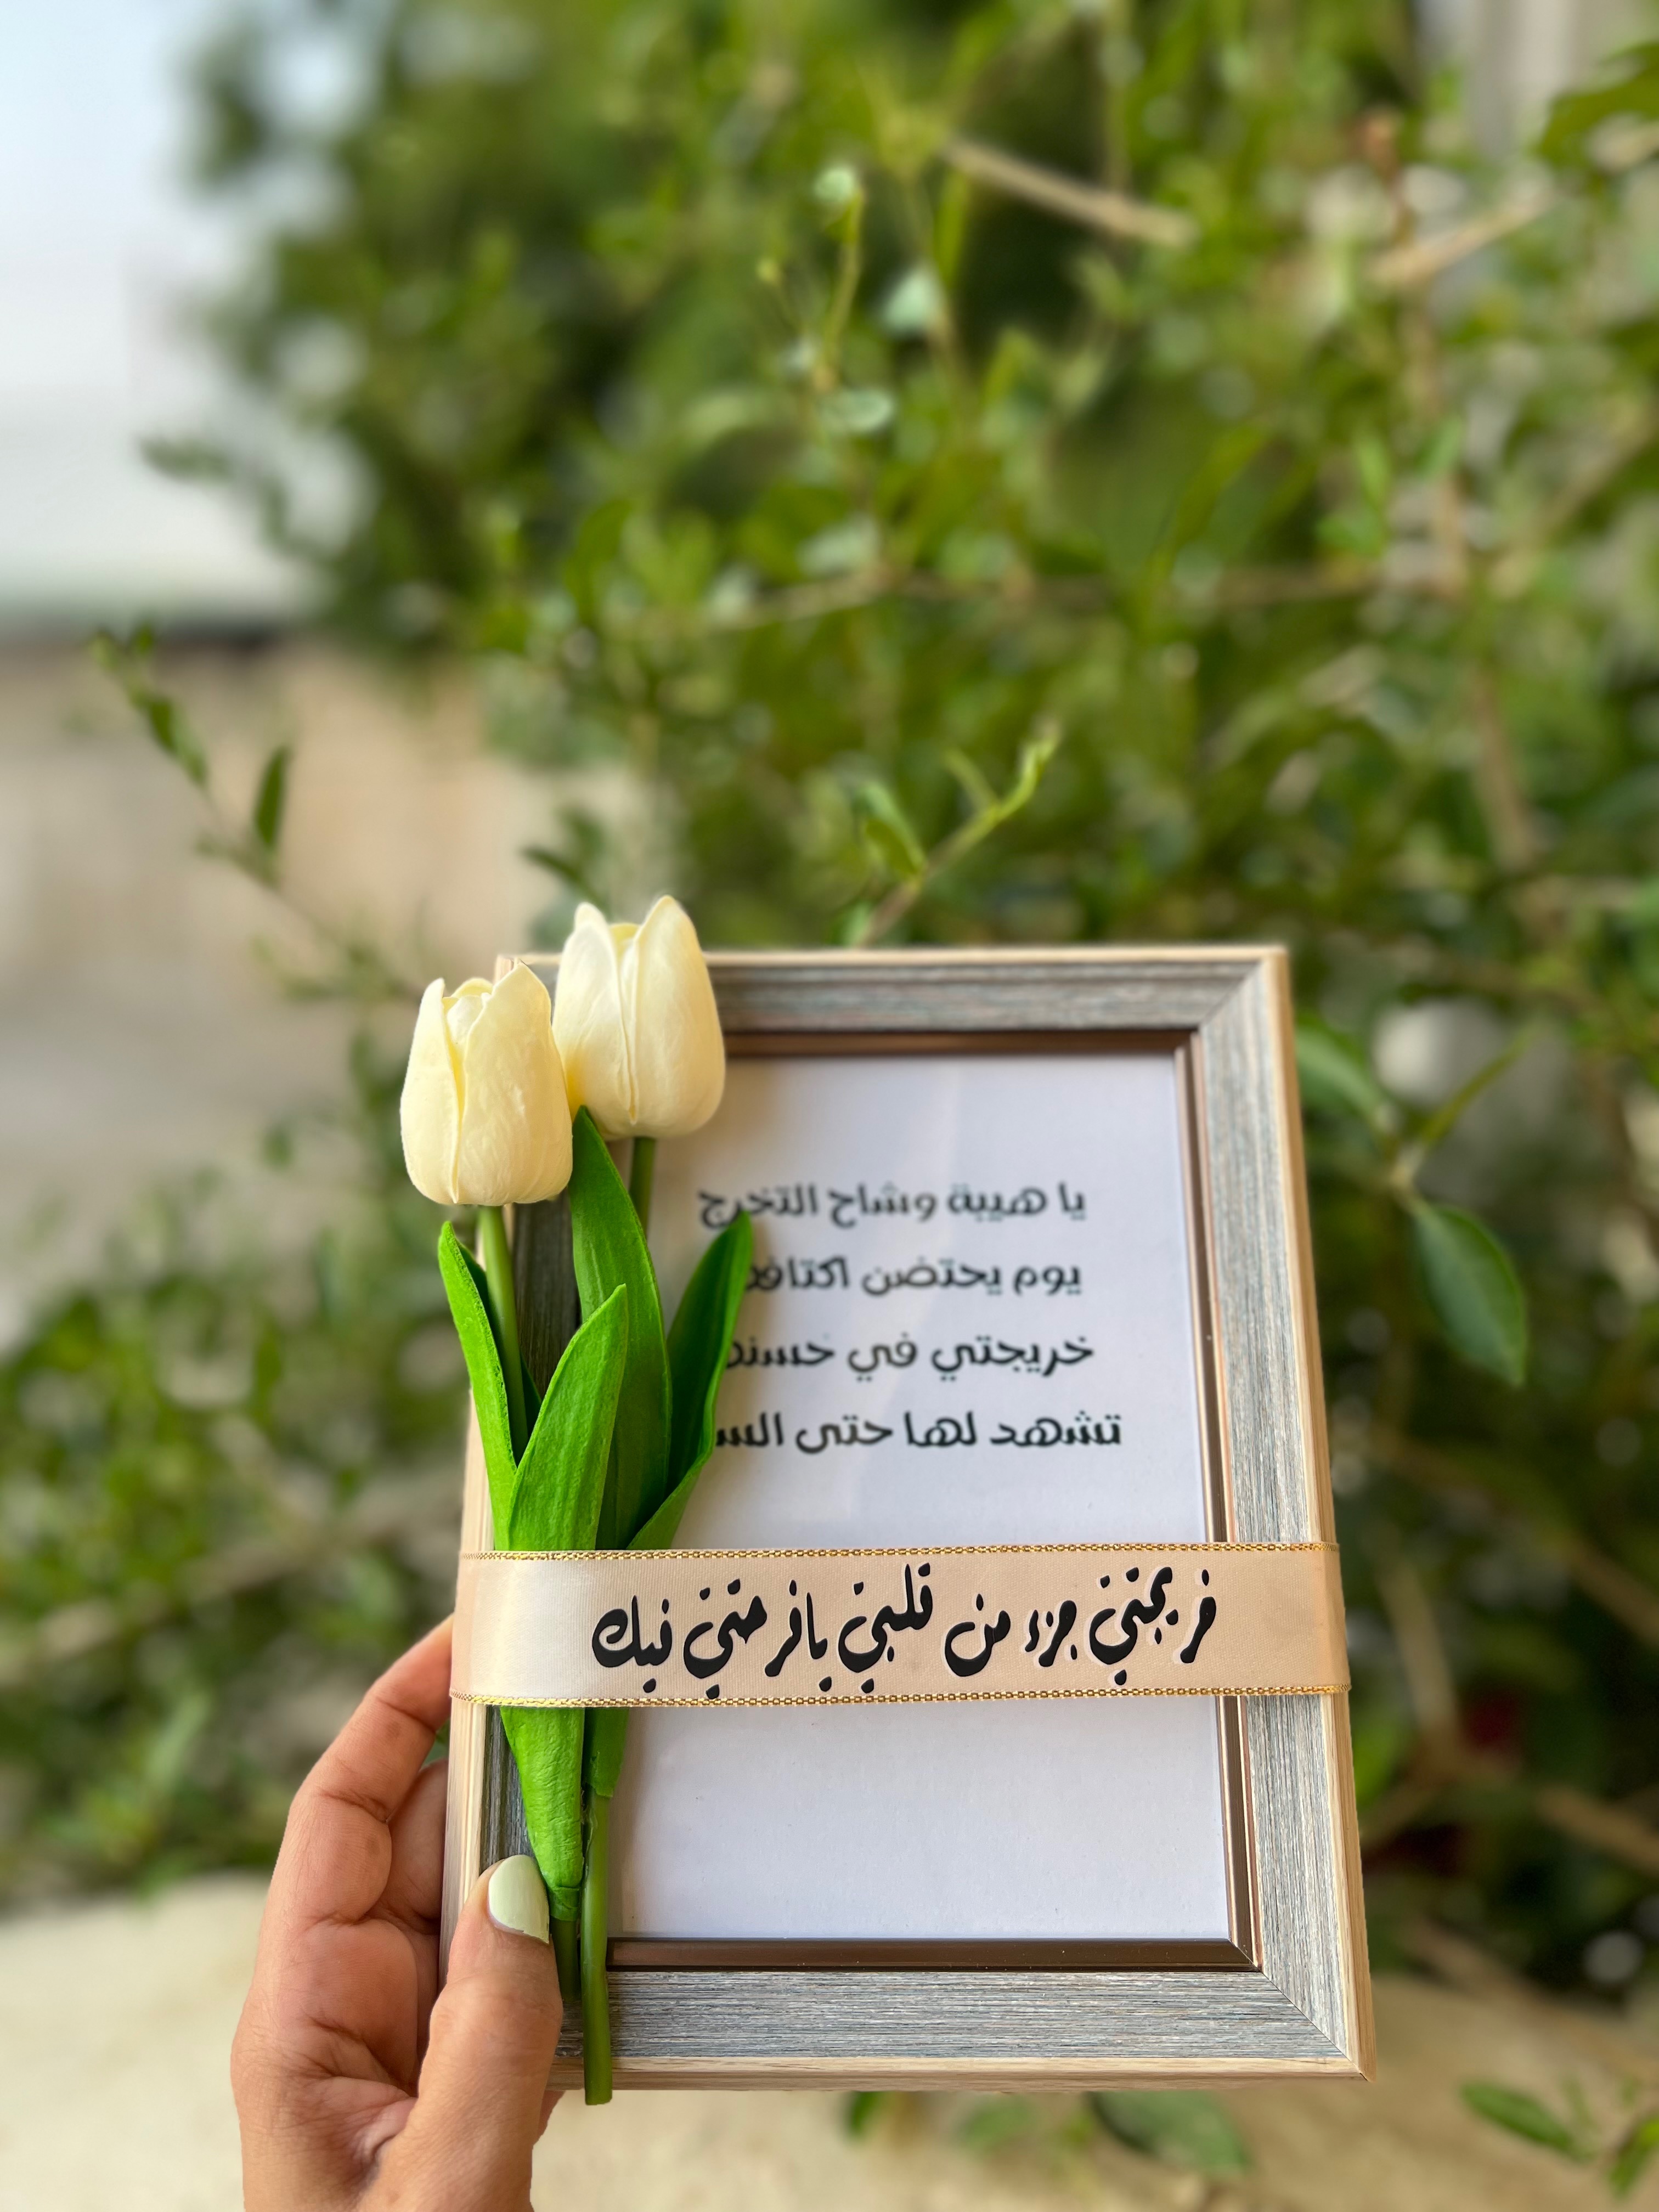 يا هيبة وشاح التخرج
يوم يحتضن اكتافه
خريجتي في حسنه
تشهد لها حتى
خريجتي جزء من قلبي يافرحتي فيك